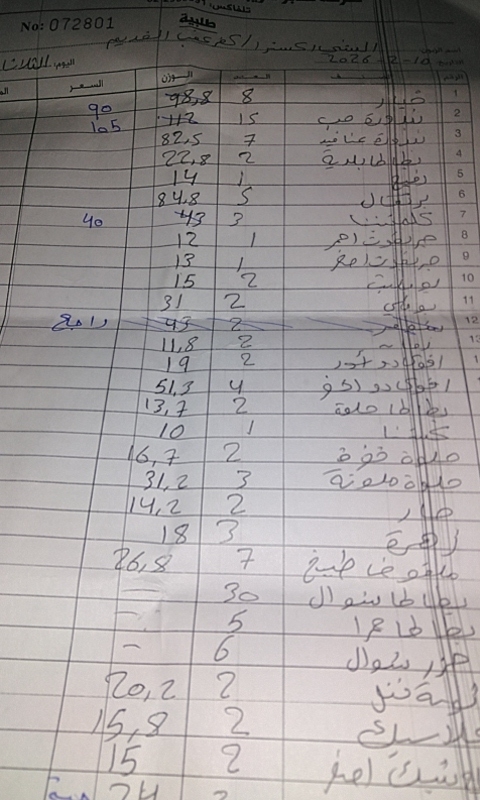 تلفاكس:
طلبية
No: 072801
اليوم: الثلاثاء
2026-2-10
السعر الوزن العدد الصنف الرقم
1 خيار 8 98,8 90
2 بندورة حب 15 112 105
3 بندورة عناقيد 7 82,5
4 بطاطا بلدية 2 22,8
5 1 14
6 برتقال 5 84,8
7 كلمنتينا 3 43 40
8 جريفوت احمر 1 12
9 جريفوت اصفر 1 13
10 2 15
11 بوملي 2 31
12 2 43 راجع
2 11,8
افوكادو 2 19
افوكادو 4 51,3
بطاطا حلوة 2 13,7
1 10
حلوة 2 16,7
حلوة ملونة 3 31,2
حار 2 14,2
زهرة 3 18
ملفوف طبيخ 7 26,8
بطاطا شوال 30 —
بطاطا حمرا 5 —
جزر شوال 6 —
2 20,2
2 15,8
اصفر 2 15
24